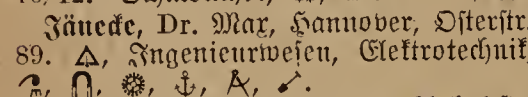 Jänecke, Dr. Max, Hannover, Osterstr.
89. Ingenieurwesen, Elektrotechnik,